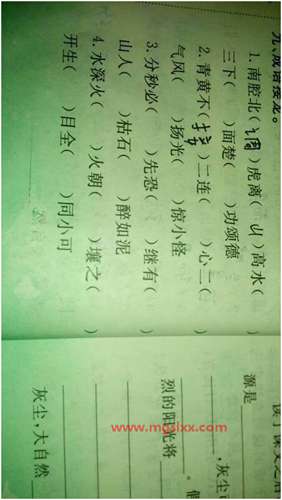 九、成语接龙。
1. 南腔北(调)虎离(山)高水( )
三下( )面楚( )功颂德
2. 青黄不(接)二连( )心二( )
气风( )扬光( )惊小怪
3. 分秒必( )先恐( )继有( )
山人( )枯石( )醉如泥
4. 水深火( )火朝( )壤之( )
开生( )目全( )同小可
源是____，灰尘
烈的阳光将____。
灰尘，大自然